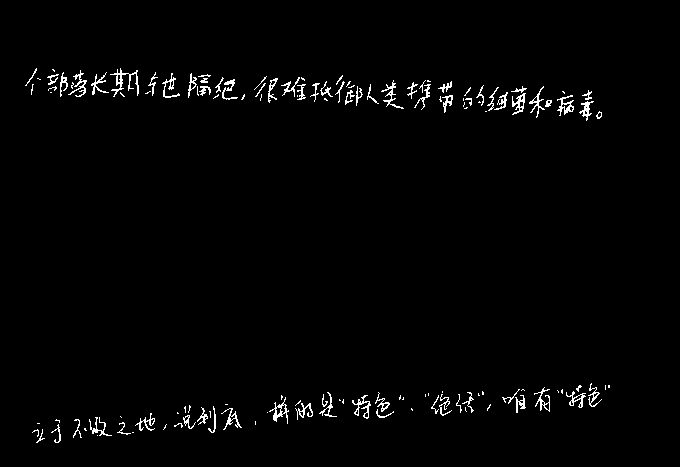 个部落长期与世隔绝,很难抵御人类携带的细菌和病毒。
立于不败之地,说到底,拼的是"特色"、"绝活",唯有"特色"